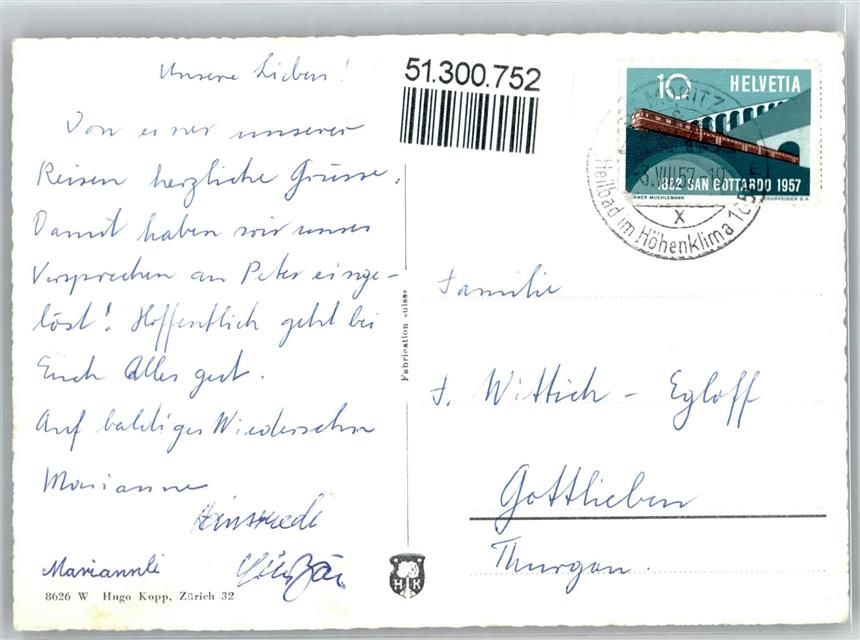 Unsere Lieben!
Von einer unserer
Reisen herzliche Grüsse.
Damit haben wir unser
Versprechen an Peter einge-
löst! Hoffentlich geht bei
Euch Alles gut.
Auf baldiges Wiedersehn
Marianne
Hansruedi
Mariannli
8626 W Hugo Kopp, Zürich 32
Fabrication suisse
HK
51.300.752
10 HELVETIA
1882 SAN GOTTARDO 1957
WERNER MUEHLEMANN COURVOISIER S.A.
ST. MORITZ
VIII 57
X
Heilbad im Höhenklima 1856 m
Familie
J. Wittich - Egloff
Gottlieben
Thurgau.